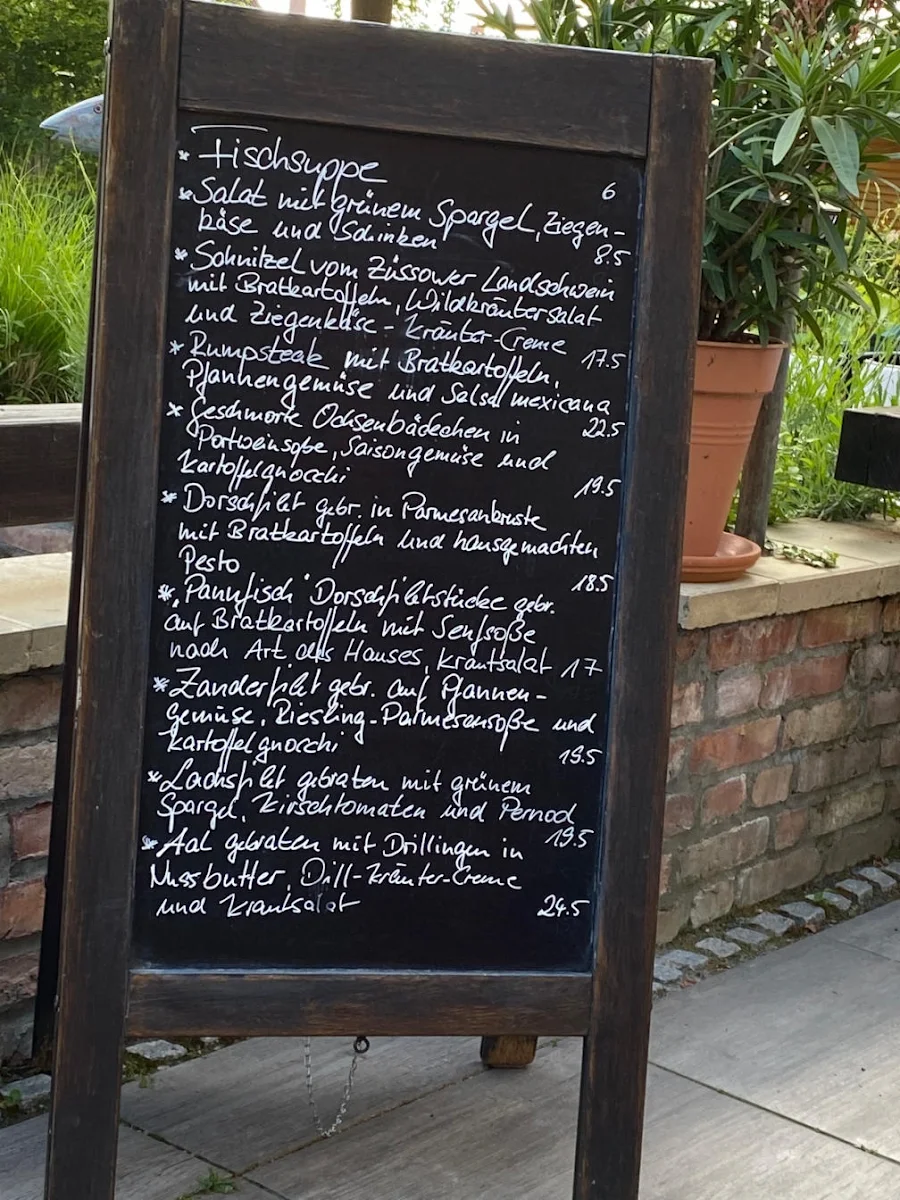 * Fischsuppe 6
* Salat mit grünem Spargel, Ziegen-
käse und Schinken 8.5
* Schnitzel vom Züssower Landschwein
mit Bratkartoffeln, Wildkräutersalat
und Ziegenkäse-Kräuter-Creme 17.5
* Rumpsteak mit Bratkartoffeln,
Pfannengemüse und Salsa mexicana 22.5
* Geschmorte Ochsenbäckchen in
Portweinsoße, Saisongemüse und
Kartoffelgnocchi 19.5
* Dorschfilet gebr. in Parmesankruste
mit Bratkartoffeln und hausgemachten
Pesto 18.5
* "Pannfisch" Dorschfiletstücke gebr.
auf Bratkartoffeln mit Senfsoße
nach Art des Hauses, Krautsalat 17
* Zanderfilet gebr. auf Pfannen-
gemüse, Riesling-Parmesansoße und
Kartoffelgnocchi 19.5
* Lachsfilet gebraten mit grünem
Spargel, Kirschtomaten und Pernod 19.5
* Aal gebraten mit Drillingen in
Nussbutter, Dill-Kräuter-Creme
und Krautsalat 24.5